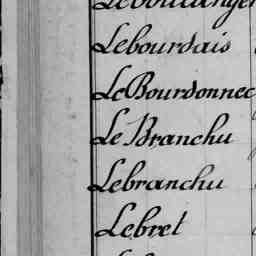 Leboulanger
Lebourdais
Le Bourdonnec
Le Branchu
Lebranchu
Lebret